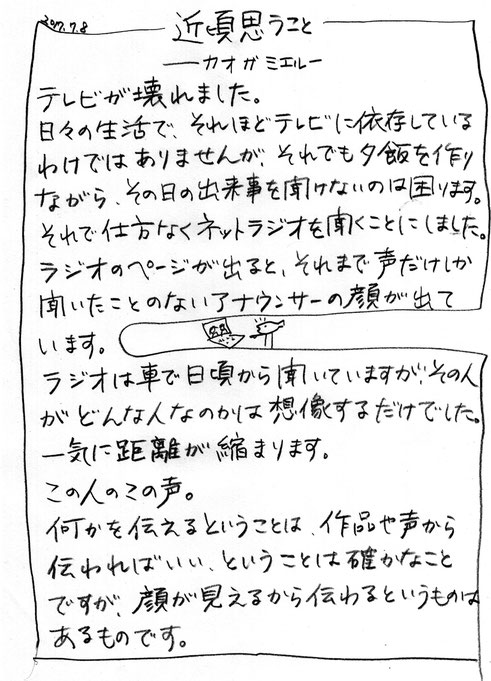 2017.7.8
近頃思うこと
──カオガミエルー
テレビが壊れました。
日々の生活で、それほどテレビに依存している
わけではありませんが、それでも夕飯を作り
ながら、その日の出来事を聞けないのは困ります。
それで仕方なくネットラジオを聞くことにしました。
ラジオのページが出ると、それまで声だけしか
聞いたことのないアナウンサーの顔が出て
います。
ラジオは車で日頃から聞いていますが、その人
がどんな人なのかは想像するだけでした。
一気に距離が縮まります。
この人のこの声。
何かを伝えるということは、作品や声から
伝わればいい、ということは確かなこと
ですが、顔が見えるから伝わるというものは
あるものです。